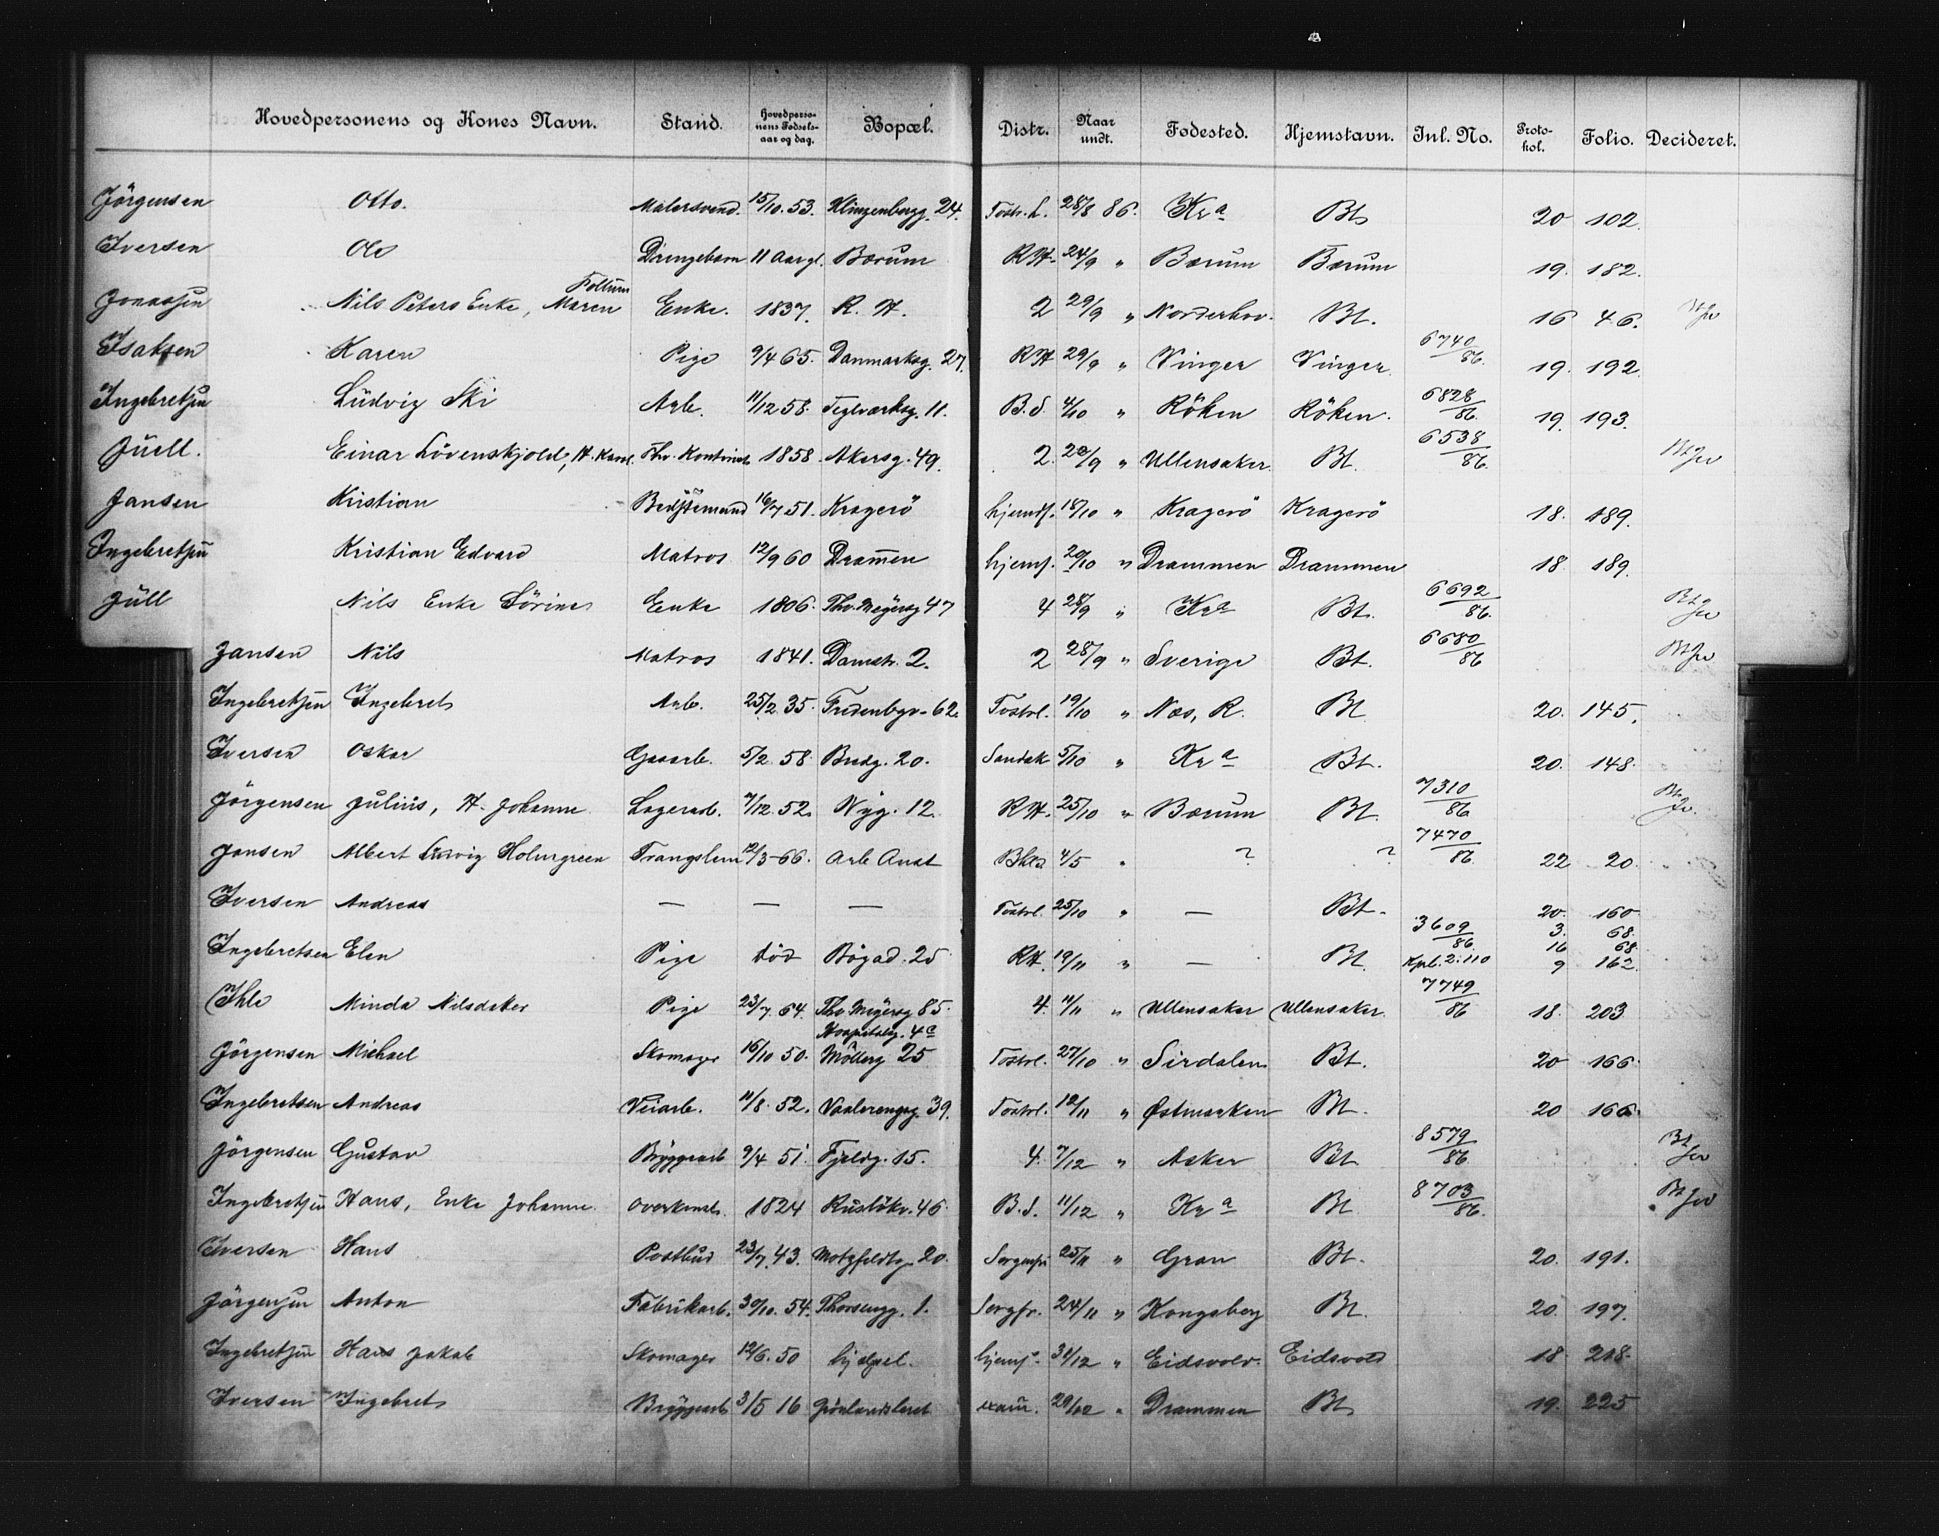 Hovedpersonens og Kones Navn. Stand. Hovedpersonens Fødselsaar og dag. Bopæl. Distr. Naar undt. Fødested. Hjemstavn. Jnl. No. Protokol. Folio. Decideret.
Jörgensen Otto. Malersvend. 15/10. 53. Klingenbergg. 24. 28/8 86. Kra Bt 20 102.
Iversen Ole Drengebarn 11 Aar gl. Bærum R.H. 24/9 " Bærum Bærum 19. 182.
Jonassen Nils Peters Enke, Maren Enke. 1837. R. H. 2 29/9 " Norderhov. Bt. 16 46.
Isaksen Karen Pige 9/4 65. Danmarksg. 27. R H 29/9 " Vinger Vinger 6740/86. 19. 192.
Ingebretsen Ludvig Ski Arb. 11/12 58. Teglværksg. 11. B.S. 4/10 " Röken Röken. 6828/86. 19. 193.
Juell. Einar Lövenskjold, 1858. Akersg. 49. 2. 20/9 " Ullensaker Bt. 6538/86.
Jansen Kristian 16/7 51. Kragerö hjemf. 18/10 " Kragerö Kragerö 18. 189.
Ingebretsen Kristian Edvard Matros 12/9 60 Dramen hjemf. 20/10 " Drammen Drammen 18 189.
Jull Nils Enke Sörine Enke 1806. Thv. Meyersg 47 4 28/9 " Kra Bt. 6692/86.
Jansen Nils Matros 1841. Damstr. 2. 2 28/9 " Sverige Bt. 6680/86
Ingebretsen Ingebret Arb. 25/2. 35. 62. Tostrl. 19/10 " Næs, R. Bt 20. 145.
Iversen Oskar Gaarb. 5/2 58. Bredg. 20. Sandak. 5/10 " Kra Bt. 20. 148.
Jörgensen Julius, H. Johanne Lagerarb. 7/12. 52. Nyg. 12. R H. 25/10 " Bærum Bt. 7310/86
Jansen Albert Ludvig Holmgreen Trangslem 12/3-66. Arb Anst 4/5 " ? ? 7470/86. 22 20.
Iversen Andreas — — — Tostrl. 25/10 " — Bt. 20. 160.
Ingebretsen Elen Pige död Bögad. 25 R H. 19/11 " — Bt. 3609/86. Kpl. 2. 110 3. 68. 16 68. 9 162
Ihle Minda Nilsdatter Pige 23/7. 64. Thv. Meyersg 85. 4. 11/11 " Ullensaker Ullensaker. 7749/86 18. 203
Hospitalsg. 4a
Jörgensen Michael Skomager 16/10 50. Möllerg 25 Tostrl. 27/10 " Sirdalen Bt. 20 166.
Ingebretsen Andreas Veiarb. 11/8. 52. Vaalerengsg 39. Tostrl. 12/11 " Østmarken Bt. 20 166.
Jörgensen Gustav Bryggearb 9/4 51. Fjeldg. 15. 4. 7/12 " Asker Bt 8579/86
Ingebretsen Hans, Enke Johanne. 1824 Ruslökv. 46 B.S. 11/12 " Kra Bt 8703/86.
Iversen Hans Postbud 23/7. 43. Motzfeldtsg 20. 25/11 " Gran Bt. 20. 191.
Jörgensen Anton Fabrikarb. 30/10. 54. 1. Sorgfr. 24/11 " Kongsberg Bt. 20. 197.
Ingebretsen Hans Jakob Skomager 12/6. 50 hjemf. 31/12 " Eidsvold. Eidsvold 18. 218.
Iversen Ingebret Bryggearb 3/5 16 Grönlandsleret 29/12 " Drammen Bt 19. 225